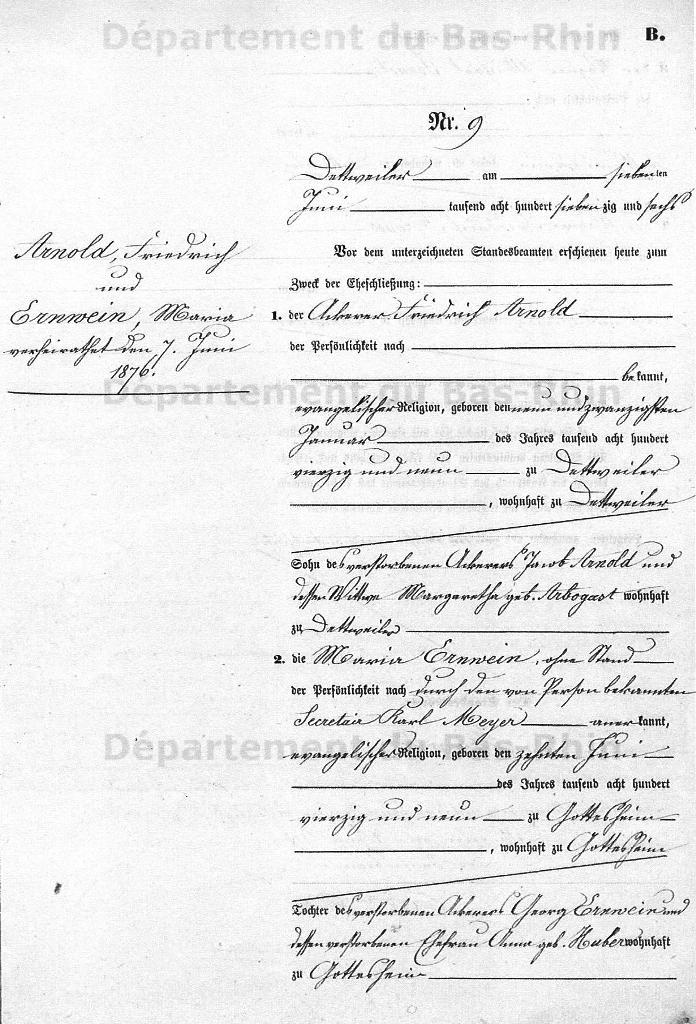 Département du Bas-Rhin
B.
Nr. 9
Dettweiler am siebenten
Juni tausend acht hundert siebenzig und sechs
Arnold, Friedrich
und
Ernwein, Maria
verheirathet den 7. Juni
1876.
Vor dem unterzeichneten Standesbeamten erschienen heute zum
Zweck der Eheschließung:
1. der Ackerer Friedrich Arnold
der Persönlichkeit nach
bekannt,
Département du Bas-Rhin
evangelischer Religion, geboren den neun und zwanzigsten
Januar des Jahres tausend acht hundert
vierzig und neun zu Dettweiler
, wohnhaft zu Dettweiler
Sohn des verstorbenen Ackerers Jacob Arnold und
dessen Wittwe Margaretha geb. Arbogast wohnhaft
zu Dettweiler
2. die Maria Ernwein, ohne Stand
der Persönlichkeit nach durch den von Person bekannten
Secretair Karl Meyer anerkannt,
Département du Bas-Rhin
evangelischer Religion, geboren den zehnten Juni
des Jahres tausend acht hundert
vierzig und neun zu Gottesheim
, wohnhaft zu Gottesheim
Tochter des verstorbenen Ackerers Georg Ernwein und
dessen verstorbenen Ehefrau Anna geb. Huber wohnhaft
zu Gottesheim